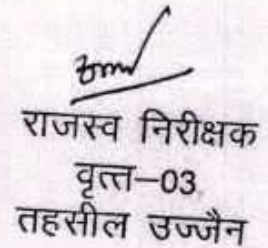 राजस्व निरीक्षक
वृत्त–03
तहसील उज्जैन